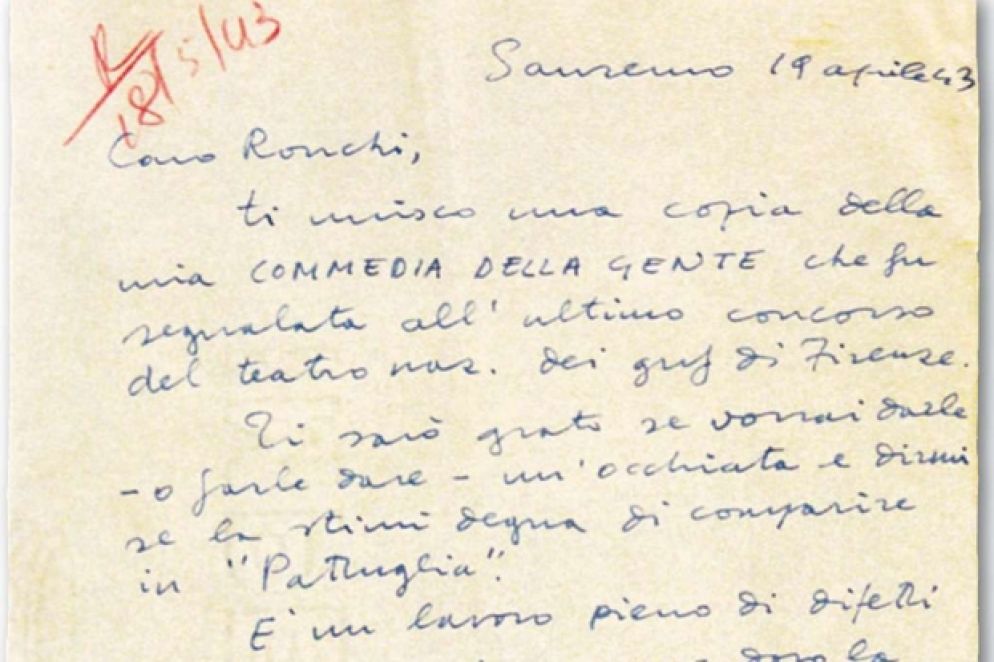 R
18/5/43
Sanremo 19 aprile 43
Caro Ronchi,
ti unisco una copia della
mia COMMEDIA DELLA GENTE che fu
segnalata all'ultimo concorso
del teatro naz. dei guf di Firenze.
Ti sarò grato se vorrai darle
- o farle dare - un'occhiata e dirmi
se la stimi degna di comparire
in "Pattuglia".
E' un lavoro pieno di difetti
dopo la